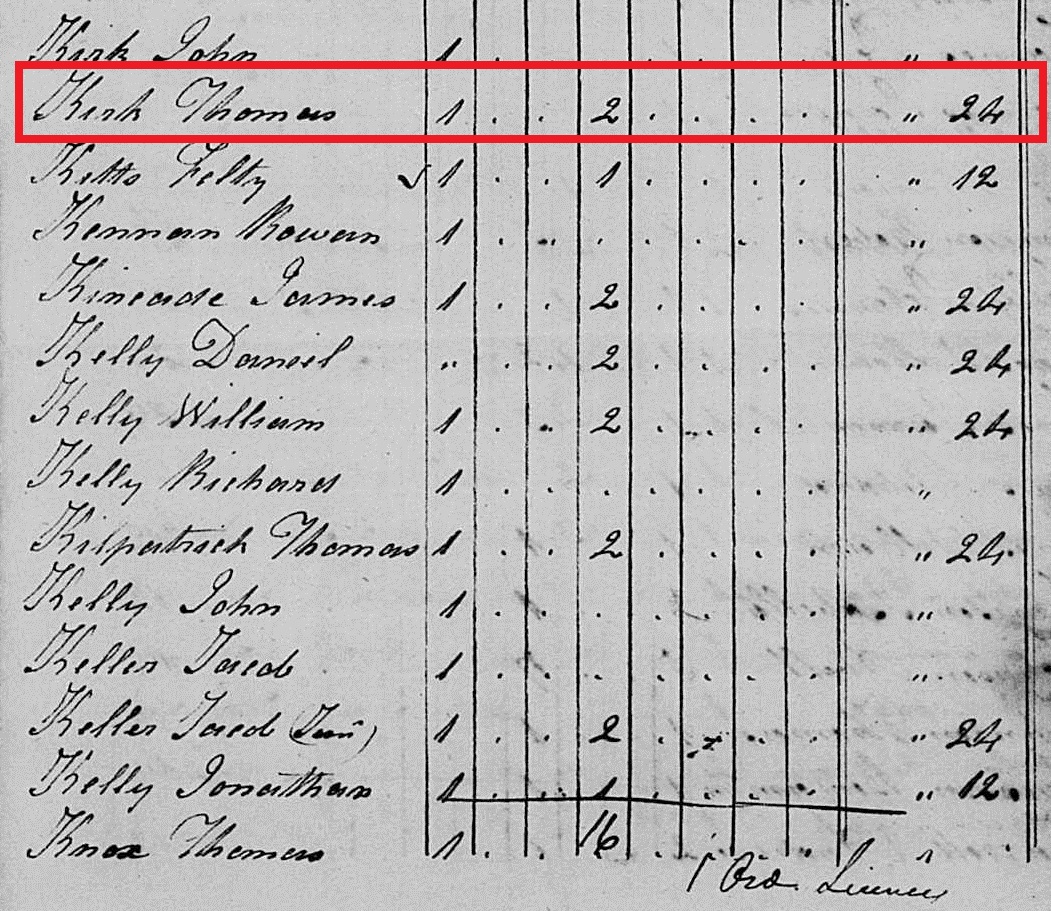 Kirk John 1 . . . . . . . "
Kirk Thomas 1 . . 2 . . . . " 24
Kitts Felty 1 . . 1 . . . . " 12
Kennan Rowan 1 . " . . . . . "
Kincade James 1 . . 2 . . . . " 24
Kelly Daniel " . . 2 . . . . " 24
Kelly William 1 . " 2 . . . . " 24
Kelly Richard 1 . . . . . . . " .
Kilpatrick Thomas 1 . . 2 . . . . " 24
Kelly John 1 . . . . . . . "
Keller Jacob 1 . . . . . . . "
Keller Jacob (Jun) 1 . . 2 . . . . " 24
Kelly Jonathan 1 . . 1 . . . . " 12
Knox Thomas 1 . . 16 . . . . 1 .
1 Ord. License